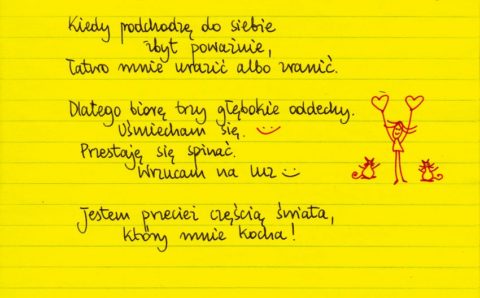 Kiedy podchodzę do siebie
zbyt poważnie,
łatwo mnie urazić albo zranić.
Dlatego biorę trzy głębokie oddechy.
Uśmiecham się.
Przestaję się spinać.
Wrzucam na luz
Jestem przecież częścią świata,
który mnie kocha!